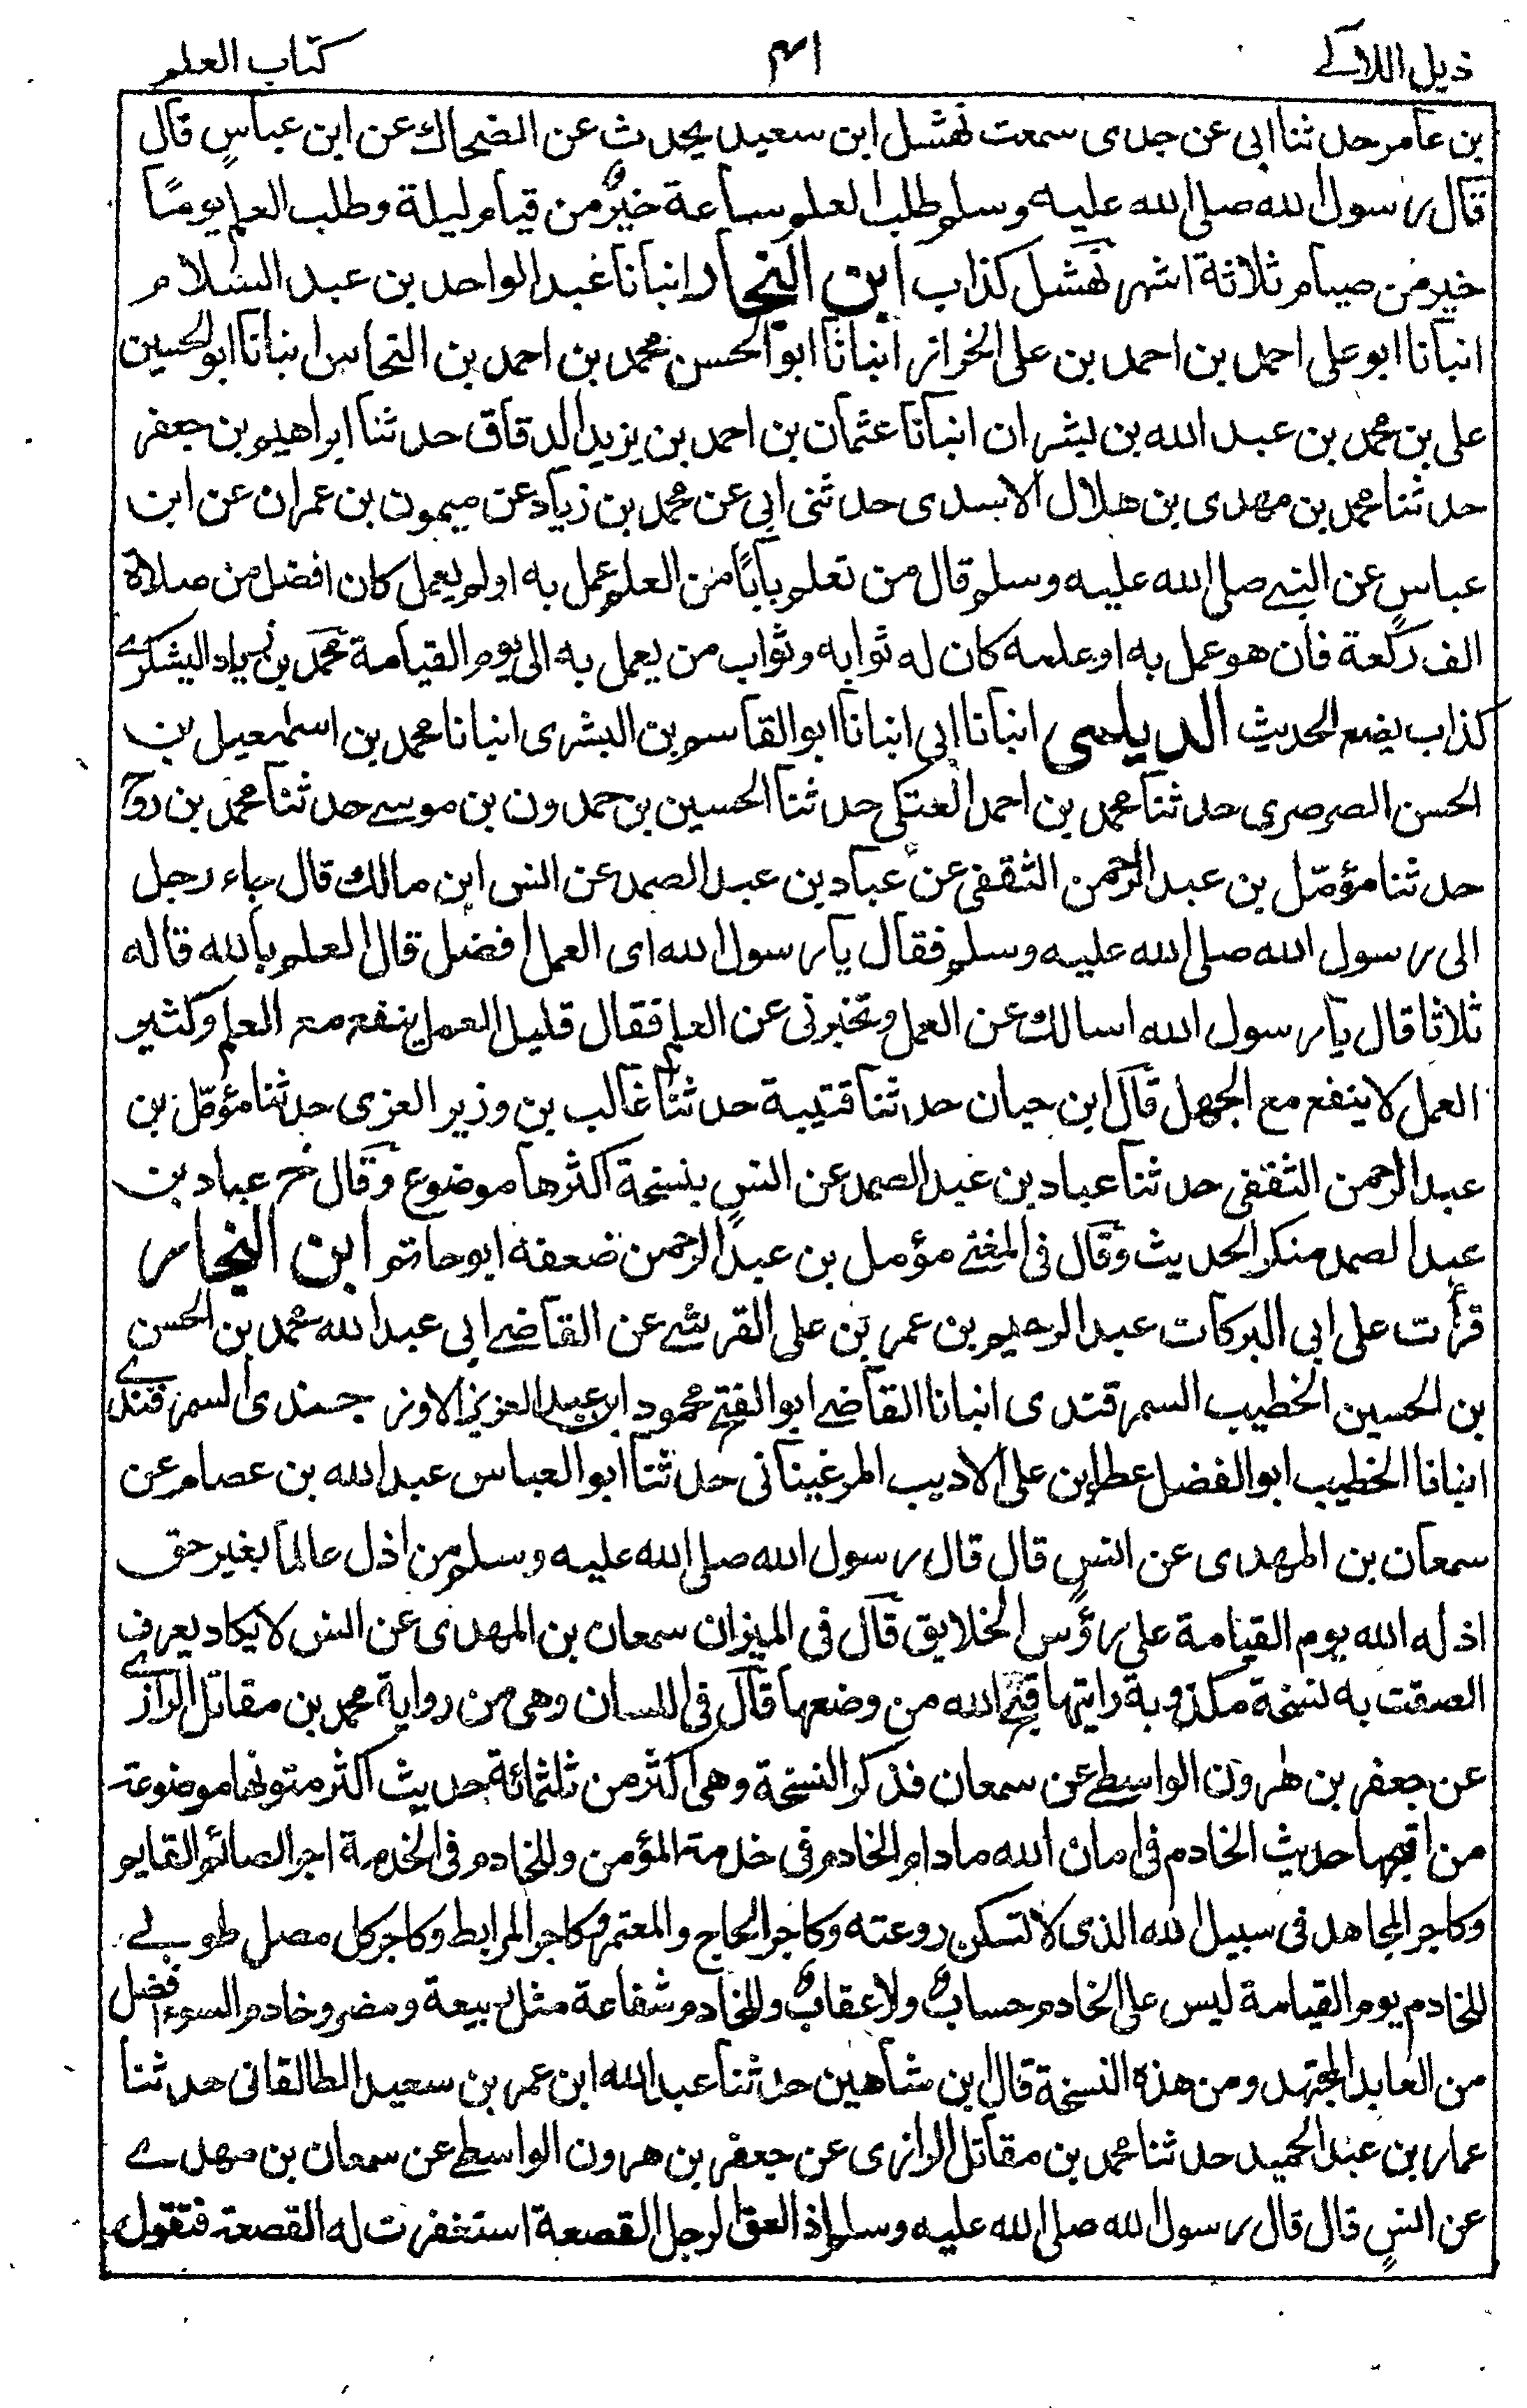 ذيل اللآلے
٤١
كتاب العلم
بن عامر حدثنا ابى عن جدى سمعت نهشل ابن سعيد يحدث عن الضحاك عن ابن عباسٍ قال
قال رسول الله صلى الله عليه وسلم طلب العلم ساعة خيرٌ من قيام ليلة وطلب العلم يومًا
خير من صيام ثلاثة اشهر نهشل كذاب ابن النجار انبانا عبد الواحد بن عبد السلام
انبانا ابو على احمد بن احمد بن على الخراز انبانا ابو الحسن محمد بن احمد بن النحاس انبانا ابو الحسين
على بن محمد بن عبد الله بن بشران انبانا عثمان بن احمد بن يزيد الدقاق حدثنا ابراهيم بن جعفر
حدثنا محمد بن مهدى بن هلال الاسدى حدثنى ابى عن محمد بن زياد عن ميمون بن عمران عن ابن
عباسٍ عن النبے صلى الله عليه وسلم قال من تعلم بابًا من العلم عمل به اولم يعمل كان افضل من صلاة
الف ركعة فان هو عمل به او علمه كان له ثوابه وثواب من يعمل به الى يوم القيامة محمد بن زياد اليشكرے
كذاب يضع الحديث الديلمى انبانا ابى انبانا ابو القاسم بن البشرى انبانا محمد بن اسمعيل بن
الحسن الصرصرى حدثنا محمد بن احمد العتكى حدثنا الحسين بن حمدون بن موسے حدثنا محمد بن روح
حدثنا مؤمّل بن عبد الرحمن الثقفى عن عباد بن عبد الصمد عن انس ابن مالك قال جاء رجل
الى رسول الله صلى الله عليه وسلم فقال يا رسول الله اى العمل افضل قال العلم بالله قاله
ثلاثا قال يا رسول الله اسالك عن العمل وتخبرنى عن العلم فقال قليل العمل ينفع مع العلم وكثير
العمل لا ينفع مع الجهل قال ابن حبان حدثنا قتيبة حدثنا غالب بن وزير الغزى حدثنا مؤمّل بن
عبد الرحمن الثقفى حدثنا عباد بن عبد الصمد عن انسٍ بنسخة اكثرها موضوع وقال خ عباد بن
عبد الصمد منكر الحديث وقال فى المغنے مؤمل بن عبد الرحمن ضعفه ابو حاتم ابن النجار
قرأت على ابى البركات عبد الرحيم بن عمر بن على القرشے عن القاضے ابى عبد الله محمد بن الحسن
بن الحسين الخطيب السمرقندى انبانا القاضے ابو الفتح محمود ابن عبد العزيز الاوزجندى السمرقندے
انبانا الخطيب ابو الفضل عطا بن على الاديب المرغينانى حدثنا ابو العباس عبد الله بن عصام عن
سمعان بن المهدى عن انسٍ قال قال رسول الله صلى الله عليه وسلم من اذل عالمًا بغير حق
اذله الله يوم القيامة على رؤس الخلايق قال فى الميزان سمعان بن المهدى عن انس لا يكاد يعرف
الصقت به نسخة مكذوبة رايتها قبح الله من وضعها قال فى اللسان وهى من رواية محمد بن مقاتل الرازے
عن جعفر بن هرون الواسطے عن سمعان فذكر النسخة وهى اكثر من ثلثمائة حديث اكثر متونها موضوعة
من اقبحها حديث الخادم فى امان الله مادام الخادم فى خدمة المؤمن وللخادم فى الخدمة اجر الصائم القايم
وكاجر المجاهد فى سبيل الله الذى لا تسكن روعته وكاجر الحاج والمعتمر وكاجر المرابط وكاجر كل مصل طوبے
للخادم يوم القيامة ليس على الخادم حسابٌ ولا عقابٌ وللخادم شفاعة مثل ربيعة ومضر وخادم السوء افضل
من العابد المجتهد ومن هذه النسخة قال ابن شاهين حدثنا عبد الله ابن عمر بن سعيد الطالقانى حدثنا
عمار بن عبد الحميد حدثنا محمد بن مقاتل الرازى عن جعفر بن هرون الواسطے عن سمعان بن مهدے
عن انسٍ قال قال رسول الله صلى الله عليه وسلم اذا لعق الرجل القصعة استغفرت له القصعة فتقول